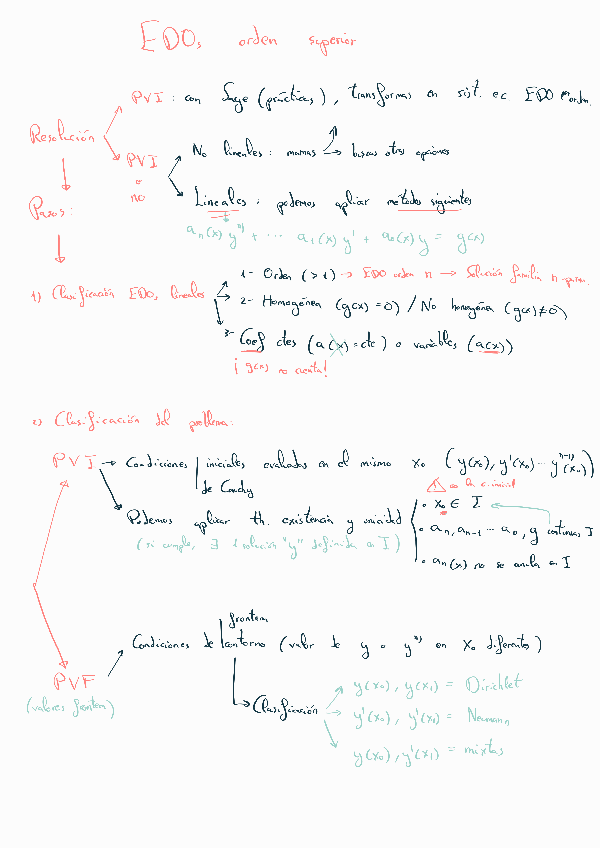 EDOs orden superior
PVI : con Sage (prácticas), transformas en sist. ec EDO 1er orden.
Resolución
PVI o no
No lineales : mamas → buscas otras opciones
Lineales : podemos aplicar métodos siguientes
Pasos :
an(x) y^n) + ... a1(x) y' + a0(x) y = g(x)
1) Clasificación EDOs lineales
1- Orden (>1) → EDO orden n → Solución familia n-param.
2- Homogénea (g(x)=0) / No homogénea (g(x)≠0)
3- Coef ctes (a(x)=cte) o variables (a(x))
¡ g(x) no cuenta!
2) Clasificación del problema:
PVI → Condiciones iniciales evaluadas en el mismo x0 (y(x0), y'(x0) ... y^n-1)(x0))
de Cauchy
⚠ x0 de c. inicial
Podemos aplicar th. existencia y unicidad
• x0 ∈ I
(si cumple, ∃ 1 solución "y" definida en I)
• an, an-1 ... a0, g continuas I
• an(x) no se anula en I
frontera
Condiciones de contorno (valor de y o y^n) en x0 diferentes)
PVF
(valores frontera)
Clasificación
y(x0), y(x1) = Dirichlet
y'(x0), y'(x1) = Neumann
y(x0), y'(x1) = mixtas